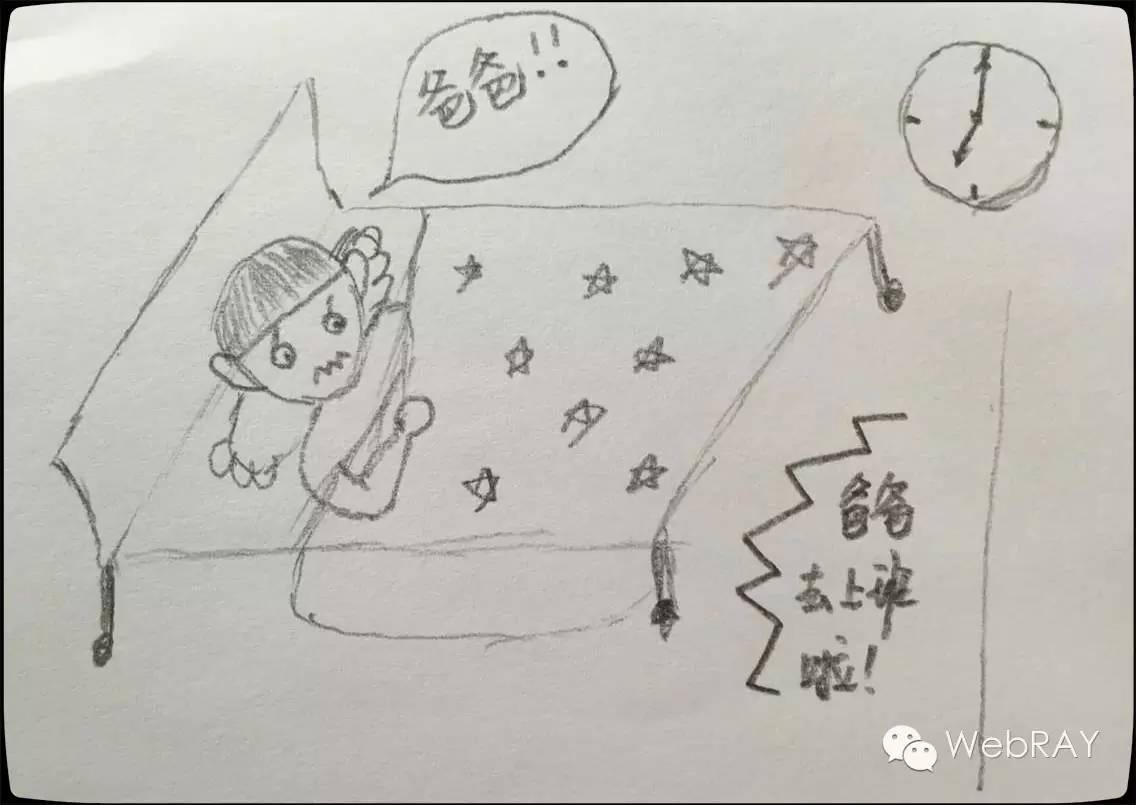 爸爸!!
爸爸
去上班
啦!
WebRAY